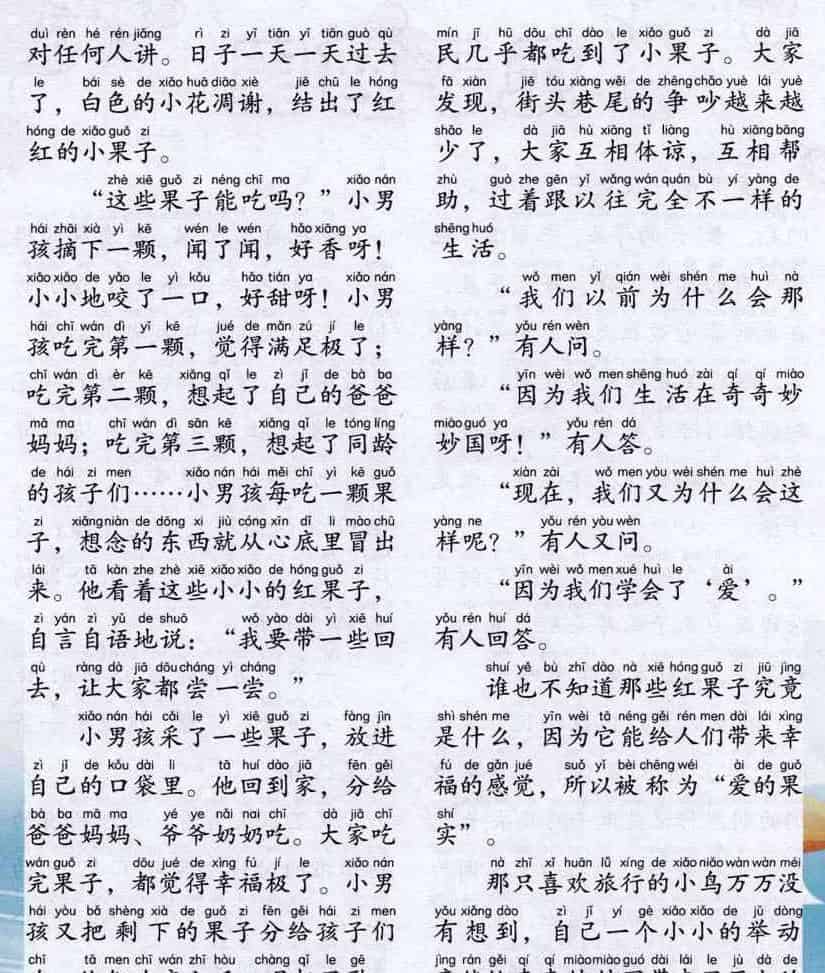 duì rèn hé rén jiǎng rì zi yī tiān yī tiān guò qù
对任何人讲。日子一天一天过去
le bái sè de xiǎo huā diāo xiè jiē chū le hóng
了，白色的小花凋谢，结出了红
hóng de xiǎo guǒ zi
红的小果子。
zhè xiē guǒ zi néng chī ma xiǎo nán
“这些果子能吃吗？”小男
hái zhāi xià yì kē wén le wén hǎo xiāng ya
孩摘下一颗，闻了闻，好香呀！
xiǎo xiǎo de yǎo le yì kǒu hǎo tián ya xiǎo nán
小小地咬了一口，好甜呀！小男
hái chī wán dì yī kē jué de mǎn zú jí le
孩吃完第一颗，觉得满足极了；
chī wán dì èr kē xiǎng qǐ le zì jǐ de bà ba
吃完第二颗，想起了自己的爸爸
mā ma chī wán dì sān kē xiǎng qǐ le tóng líng
妈妈；吃完第三颗，想起了同龄
de hái zi men xiǎo nán hái měi chī yì kē guǒ
的孩子们……小男孩每吃一颗果
zi xiǎng niàn de dōng xi jiù cóng xīn dǐ lǐ mào chū
子，想念的东西就从心底里冒出
lái tā kàn zhe zhè xiē xiǎo xiǎo de hóng guǒ zi
来。他看着这些小小的红果子，
zì yán zì yǔ de shuō wǒ yào dài yì xiē huí
自言自语地说：“我要带一些回
qù ràng dà jiā dōu cháng yì cháng
去，让大家都尝一尝。”
xiǎo nán hái cǎi le yì xiē guǒ zi fàng jìn
小男孩采了一些果子，放进
zì jǐ de kǒu dài li tā huí dào jiā fēn gěi
自己的口袋里。他回到家，分给
bà ba mā ma yé ye nǎi nai chī dà jiā chī
爸爸妈妈、爷爷奶奶吃。大家吃
wán guǒ zi dōu jué de xìng fú jí le xiǎo nán
完果子，都觉得幸福极了。小男
hái yòu bǎ shèng xià de guǒ zi fēn gěi hái zi men
孩又把剩下的果子分给孩子们
chī tā men chī wán zhī hòu chàng qǐ le gē
mín jī hū dōu chī dào le xiǎo guǒ zi dà jiā
民几乎都吃到了小果子。大家
fā xiàn jiē tóu xiàng wěi de zhēng chǎo yuè lái yuè
发现，街头巷尾的争吵越来越
shǎo le dà jiā hù xiāng tǐ liàng hù xiāng bāng
少了，大家互相体谅，互相帮
zhù guò zhe gēn yǐ wǎng wán quán bù yí yàng de
助，过着跟以往完全不一样的
shēng huó
生活。
wǒ men yǐ qián wèi shén me huì nà
“我们以前为什么会那
yàng yǒu rén wèn
样？”有人问。
yīn wèi wǒ men shēng huó zài qí qí miào
“因为我们生活在奇奇妙
miào guó ya yǒu rén dá
妙国呀！”有人答。
xiàn zài wǒ men yòu wèi shén me huì zhè
“现在，我们又为什么会这
yàng ne yǒu rén yòu wèn
样呢？”有人又问。
yīn wèi wǒ men xué huì le ài
“因为我们学会了‘爱’。”
yǒu rén huí dá
有人回答。
shuí yě bù zhī dào nà xiē hóng guǒ zi jiū jìng
谁也不知道那些红果子究竟
shì shén me yīn wèi tā néng gěi rén men dài lái xìng
是什么，因为它能给人们带来幸
fú de gǎn jué suǒ yǐ bèi chēng wéi ài de guǒ
福的感觉，所以被称为“爱的果
shí
实”。
nà zhī xǐ huān lǚ xíng de xiǎo niǎo wàn wàn méi
那只喜欢旅行的小鸟万万没
yǒu xiǎng dào zì jǐ yí gè xiǎo xiǎo de jǔ dòng
有想到，自己一个小小的举动
jìng rán gěi qí qí miào miào guó dài lái le jù dà de